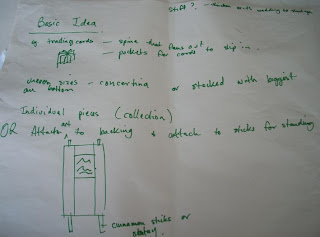 Basic Idea
Stiff? - random with wadding as envelope
eg trading cards - spine that fans out
- pockets for cards to slip in.
uneven sizes - concertina or stacked with biggest
on bottom
Individual pieces (collection)
OR Attach art to backing & attach to sticks for standing
cinnamon sticks or